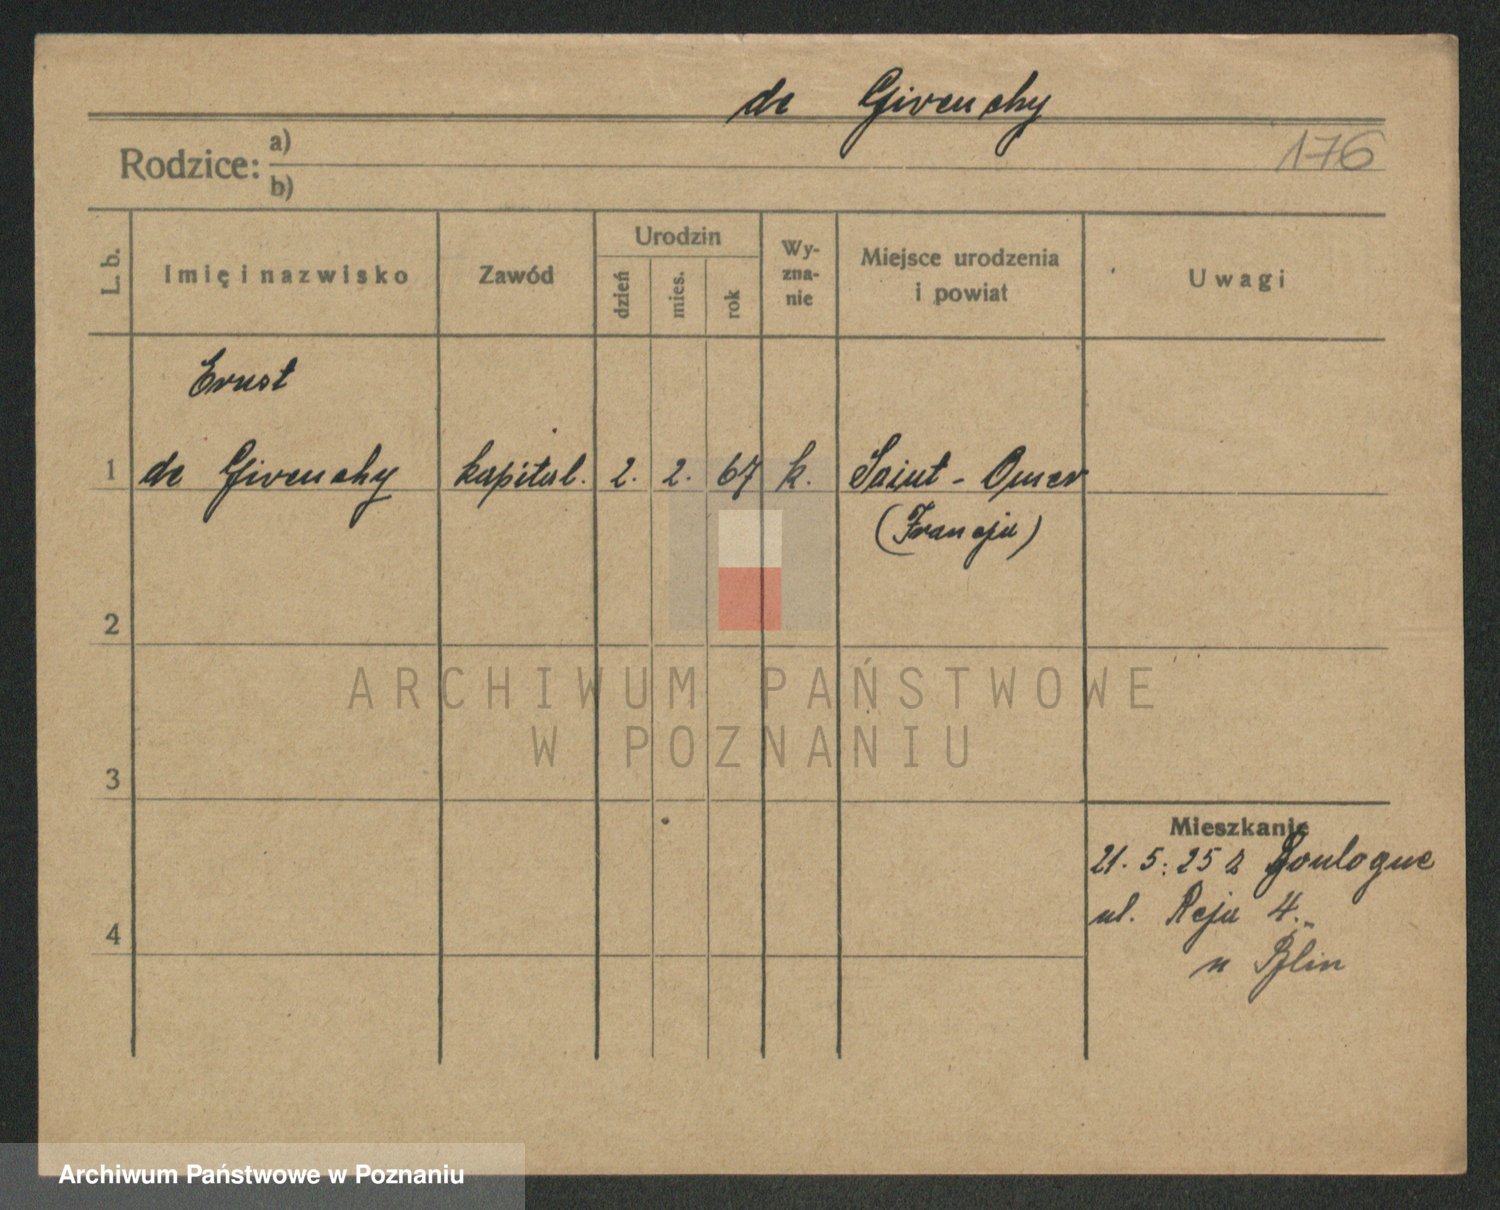 de Givenchy
176
Rodzice: a)
b)
L. b.
Imię i nazwisko
Zawód
Urodzin
dzień
mies.
rok
Wy-
zna-
nie
Miejsce urodzenia
i powiat
Uwagi
Ernst
1 de Givenchy kapital. 2. 2. 67 k. Saint-Omer
(Francja)
2
3
4
Mieszkanie
21. 5. 25 z Boulogne
ul. Reja 4.
u
ARCHIWUM PAŃSTWOWE
W POZNANIU
Archiwum Państwowe w Poznaniu